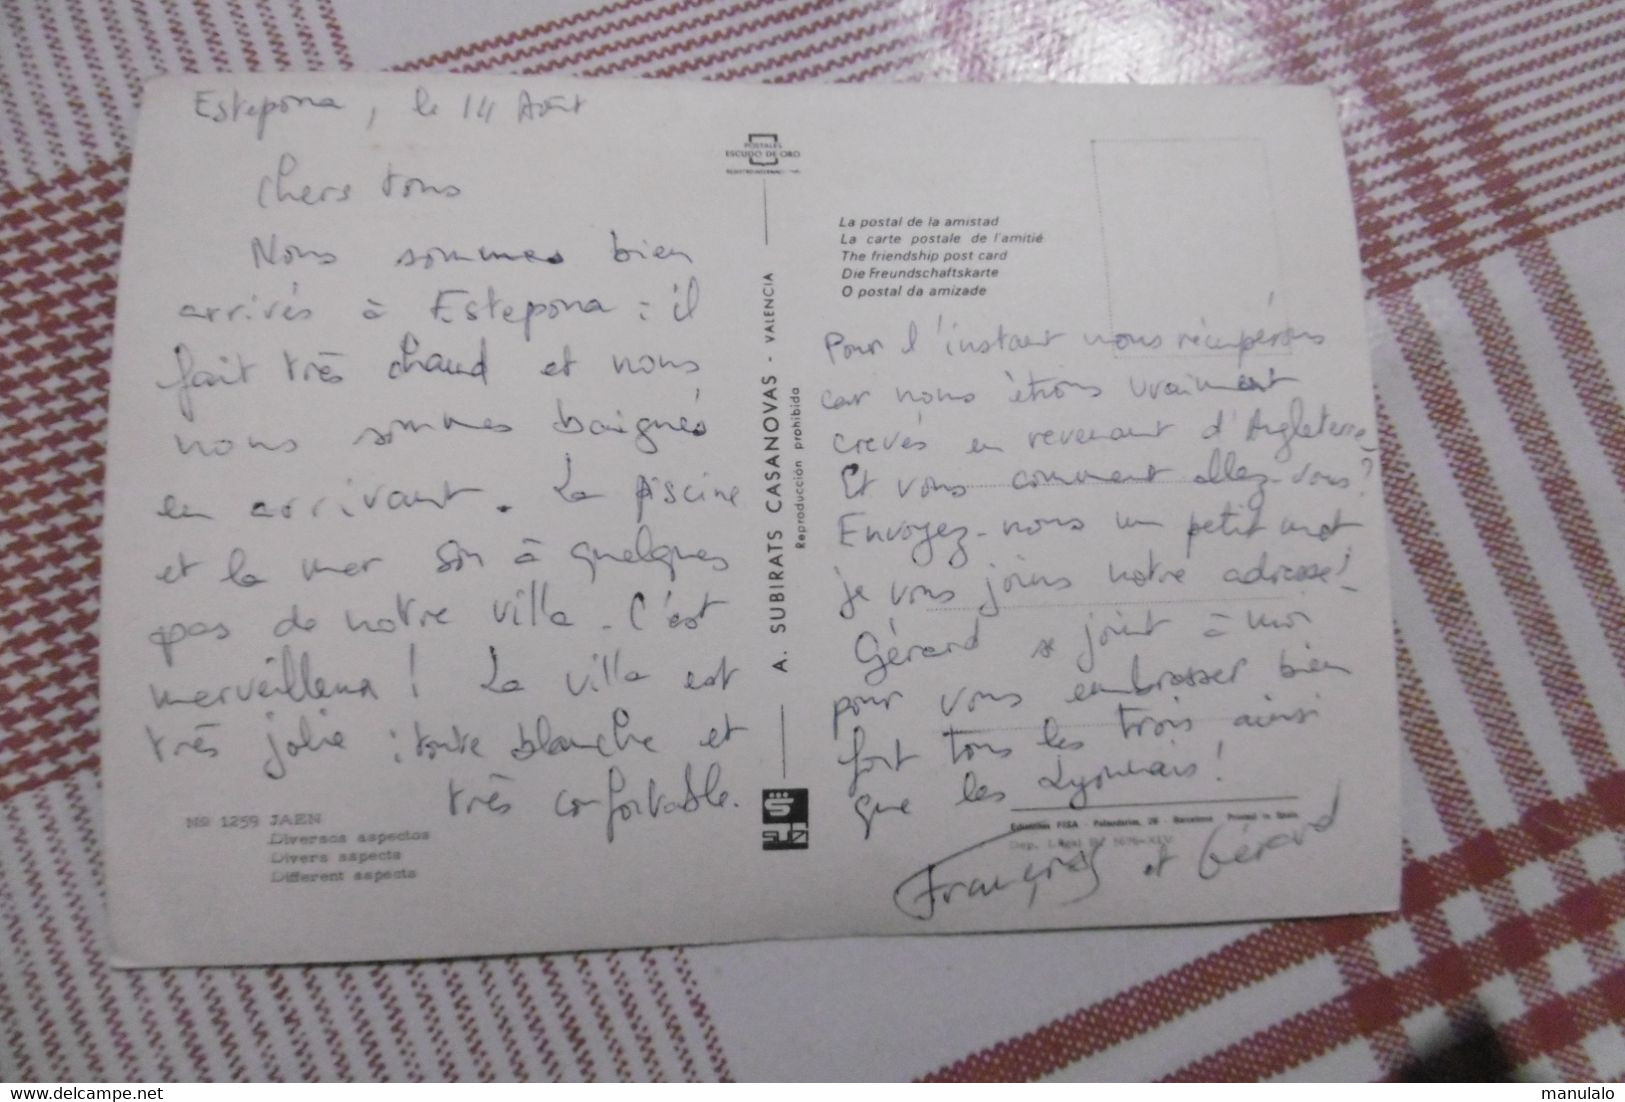 Estepona, le 14 Août
Chers tous
Nous sommes bien
arrivés à Estepona : il
fait très chaud et nous
nous sommes baignés
en arrivant. La piscine
et la mer son à quelques
pas de notre villa. C'est
merveilleux ! La villa est
très jolie : toute blanche et
très confortable.
Nº 1259 JAEN
Diversos aspectos
Divers aspects
Different aspects
POSTALES
ESCUDO DE ORO
A. SUBIRATS CASANOVAS - VALENCIA
Reproducción prohibida
La postal de la amistad
La carte postale de l'amitié
The friendship post card
Die Freundschaftskarte
O postal da amizade
Pour l'instant nous récupérons
car nous étions vraiment
crevés en revenant d'Angleterre.
Et vous comment allez-vous ?
Envoyez-nous un petit mot
je vous joins notre adresse !
Gérard se joint à moi
pour vous embrasser bien
fort tous les trois ainsi
que les Lyonnais !
FISA - Palaudarias, 26 - Barcelona Printed in Spain
Dep. Legal
et Gérard
manulalo